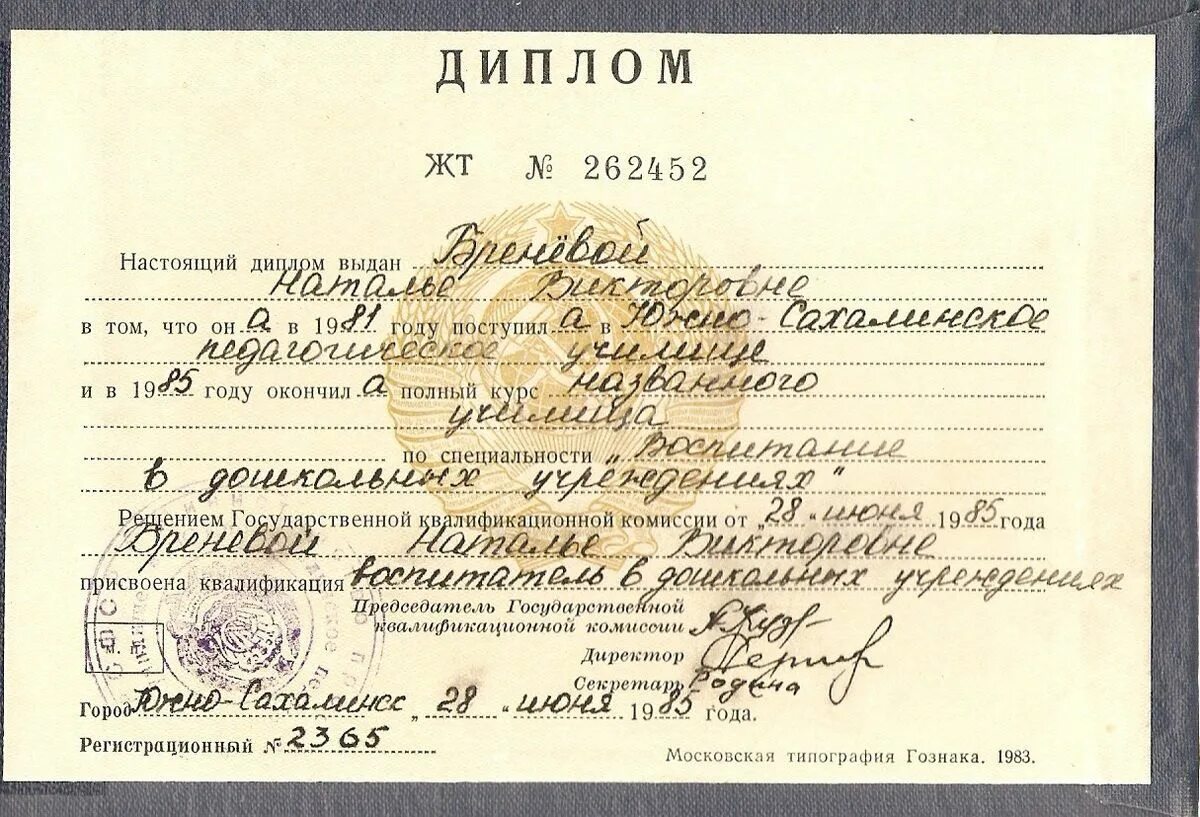 ДИПЛОМ
ЖТ № 262452
Настоящий диплом выдан Бренёвой
Наталье Викторовне
в том, что он а в 1981 году поступил а в Южно-Сахалинское
педагогическое училище
и в 1985 году окончил а полный курс названного
училища
по специальности „Воспитание
в дошкольных учреждениях"
Решением Государственной квалификационной комиссии от „28" июня 1985 года
Бреневой Наталье Викторовне
присвоена квалификация воспитатель в дошкольных учреждениях
Председатель Государственной
квалификационной комиссии
Директор
Секретарь Родина
М. П.
Город Южно-Сахалинск „28" июня 1985 года.
Регистрационный № 2365
Московская типография Гознака. 1983.